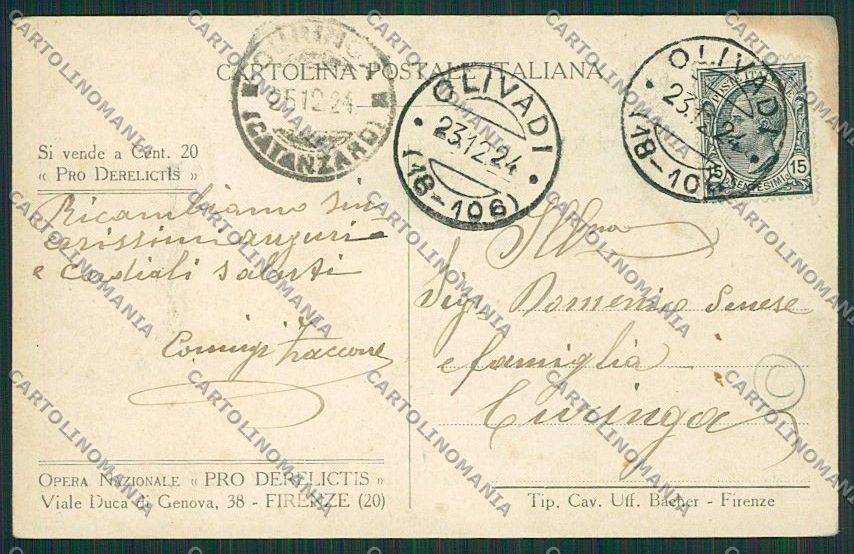 CARTOLINA POSTALE ITALIANA
CURINGA
25.12.24
(CATANZARO)
OLIVADI
23.12.24
(18-106)
OLIVADI
23.12.24
(18-106)
POSTE ITALIANE
15 CENTESIMI 15
Si vende a Cent. 20
« PRO DERELICTIS »
Ricambiamo sin
cerissimi auguri
e cordiali saluti
Coniugi Zaccone
Ill.mo
Sig. Domenico Senese
e famiglia
Curinga
OPERA NAZIONALE « PRO DERELICTIS »
Viale Duca di Genova, 38 - FIRENZE (20)
Tip. Cav. Uff. Bacher - Firenze
CARTOLINOMANIA